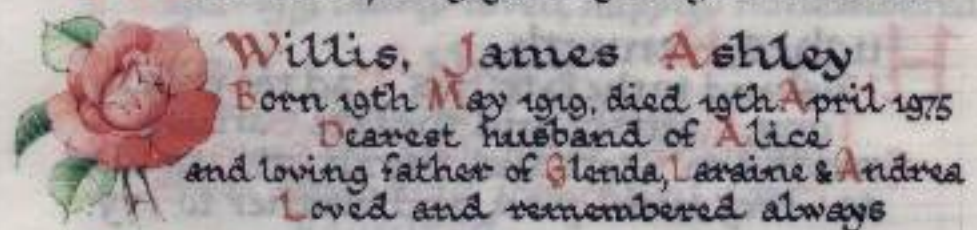 Willis, James Ashley
Born 19th May 1919, died 19th April 1975
Dearest husband of Alice
and loving father of Glenda, Laraine & Andrea
Loved and remembered always